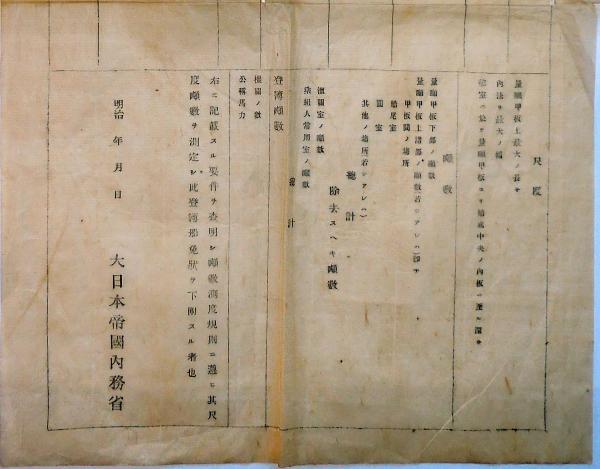 尺度
量噸甲板上最大ノ長サ
内法リ最大ノ幅
艙室ニ於テ量噸甲板ヨリ船底中央ノ内板ニ達ル深サ
噸數
量噸甲板下部ノ噸數
量噸甲板上諸部ノ噸數若シアレハ即チ
甲板間ノ場所
船尾室
圓室
其他ノ場所若シアレハ
總計
除去スヘキ噸數
機關室ノ噸數
乗組人常用室ノ噸數
總計
登簿噸數
機關ノ數
公稱馬力
右ニ記載スル要件ヲ査明シ噸數測度規則ニ遵ヒ其尺
度噸數ヲ測定シ此登簿船免狀ヲ下附スル者也
明治 年 月 日
大日本帝國内務省